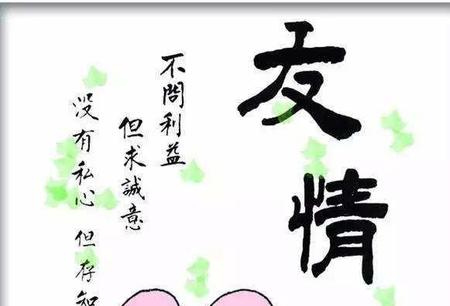 友情
不問利益
但求誠意
沒有私心 但存知